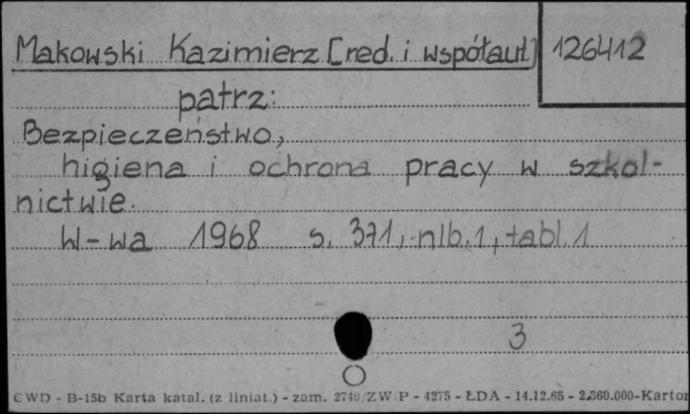 Makowski Kazimierz [red. i współaut] 126412
patrz:
Bezpieczeństwo,
higiena i ochrona pracy w szkol-
nictwie.
W-wa 1968 s. 371, nlb. 1, tabl. 1
3
CWD - B-15b Karta katal. (z liniat.) - zam. 2740/ZW/P - 4275 - ŁDA - 14.12.65 - 2.360.000-Karton